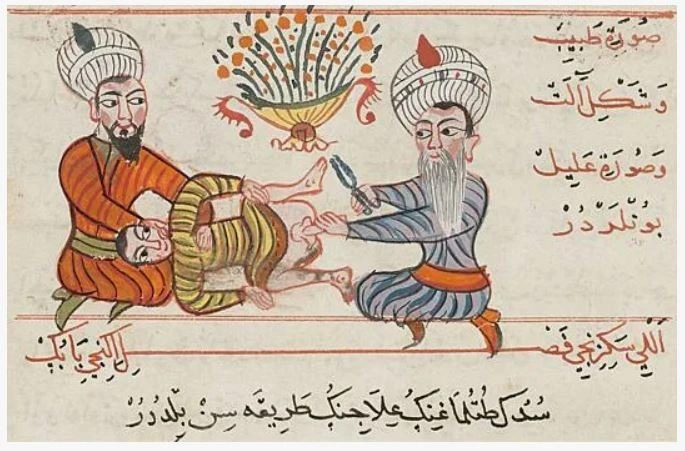 صُورَةِ طَبِيبْ
وَشَكْلِ آلَتْ
وَصُورَةِ عَلِيلْ
بُونْلَرْدُرْ
اَللِّي سَكِزِنْجِي فَصْل اِكِنْجِي بَابُكْ
سُدُكْ طُتُلْمَاغِنِكْ عِلَاجِنِكْ طَرِيقَه سِنْ بِلْدُرُرْ